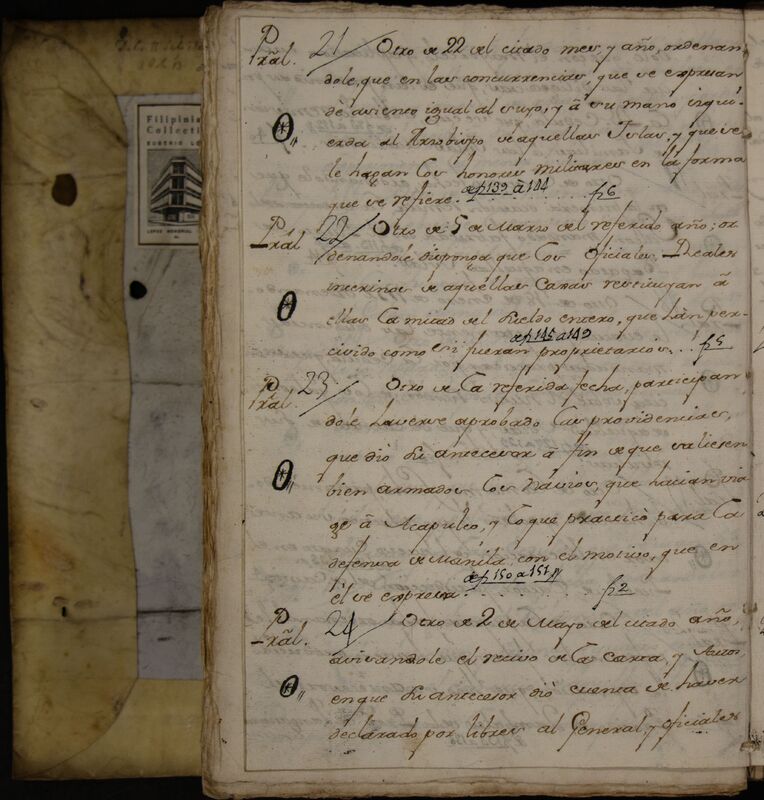 Filipinia
Collecti
EUGENIO LO
LOPEZ MEMORIAL
Pral. 21 Otro de 22 del citado mes, y año, ordenan
dole, que en las concurrencias, que se expresan
dè asiento igual al suyo, y à su mano izqui
erda al Arzobispo de aquellas Islas, y que se
le hagan los honores militares en la forma
que se refiere. af 139 à 144 f 6
Pral 22 Otro de 5 de Marzo del referido año; or
denandole disponga que los Oficiales Reales
interinos de aquellas Caxas restituyan à
ellas la mitad del Sueldo entero, que hàn per
civido como si fueran proprietarios. af 145 a 149 f 5
Pral. 23 Otro de la referida fecha, participan
dole haverse aprobado las providencias,
que diò su antecesor à fin de que saliesen
bien armados los Navios, que hacian via
ge à Acapulco, y lo que practicò para la
defensa de Manila con el motivo, que en
èl se expresa. af 150 a 151 f 2
Pral. 24 Otro de 2 de Mayo del citado año,
avisandole el recivo de la Carta, y Autos
en que su antecesor diò cuenta de haver
declarado por libres al General, y oficiales